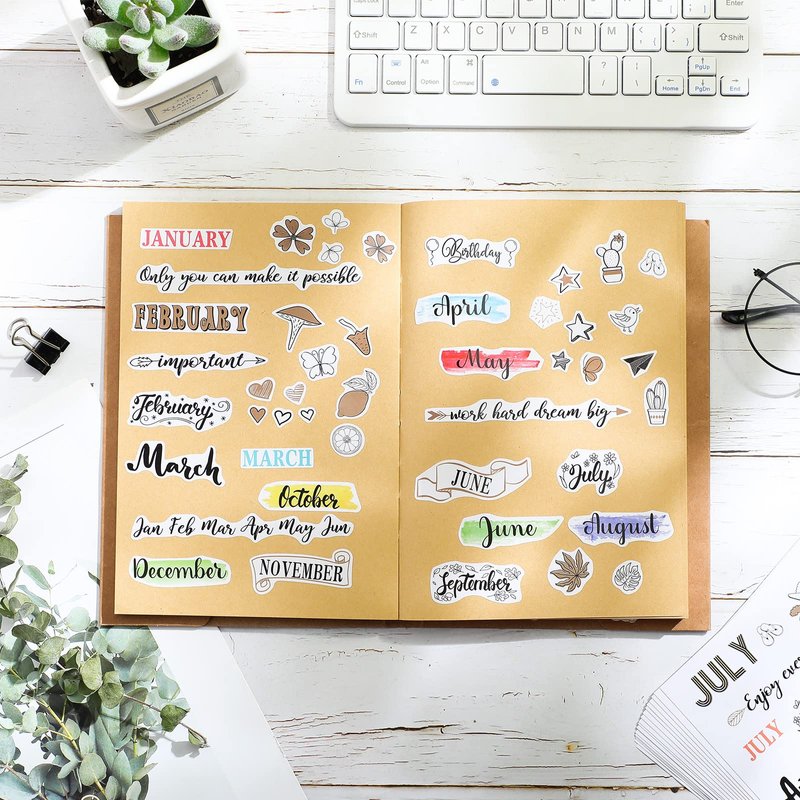 XIAOBAO
Caps Lock
Enter
Shift
Z
X
C
V
B
N
M
Shift
Fn
Control
Alt
Option
Command
PgUp
Home
PgDn
End
JANUARY
Only you can make it possible
FEBRUARY
important
February
March
MARCH
October
Jan Feb Mar Apr May Jun
December
NOVEMBER
Birthday
April
May
work hard dream big
JUNE
July
June
August
September
JULY
Enjoy eve
JULY